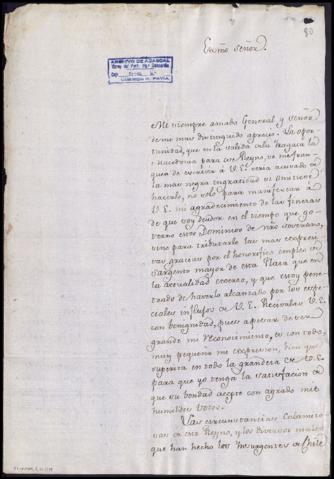 80
Exmo Señor.
ARCHIVO DE ABASCAL
Mi siempre amado General y señor
de mi mas distinguido aprecio. La opor-
tunidad, que en la salida de la fragata
Macedonia para ese Reyno, se me fran-
quea de escrivir a V.E. seria acusado de
la mas negra ingratitud si omitiese
hacerlo, no solo para manifestar a
V.E. mi agradecimiento de las finezas
de que soy deudor en el tiempo que go-
verno estos Dominios de nro soverano,
sino para tributarle las mas expresi-
vas gracias por el honorifico empleo de
Sargento mayor de esta Plaza que en
la actualidad exerzo, y que estoy pene-
trado de haverlo alcanzado por los espe-
ciales influxos de V.E. Recivalas V.E.
con benignidad, pues apesar de ser
grande mi reconocimiento, es con todo
muy pequeña mi expresion, bien que
suplirá en todo la grandeza de V.E.
para que yo tenga la satisfaccion de
que su bondad acepte con agrado mis
humildes votos.
Las circunstancias calamito-
sas de este Reyno, y los diversos males
que han hecho los Insurgentes de Chile